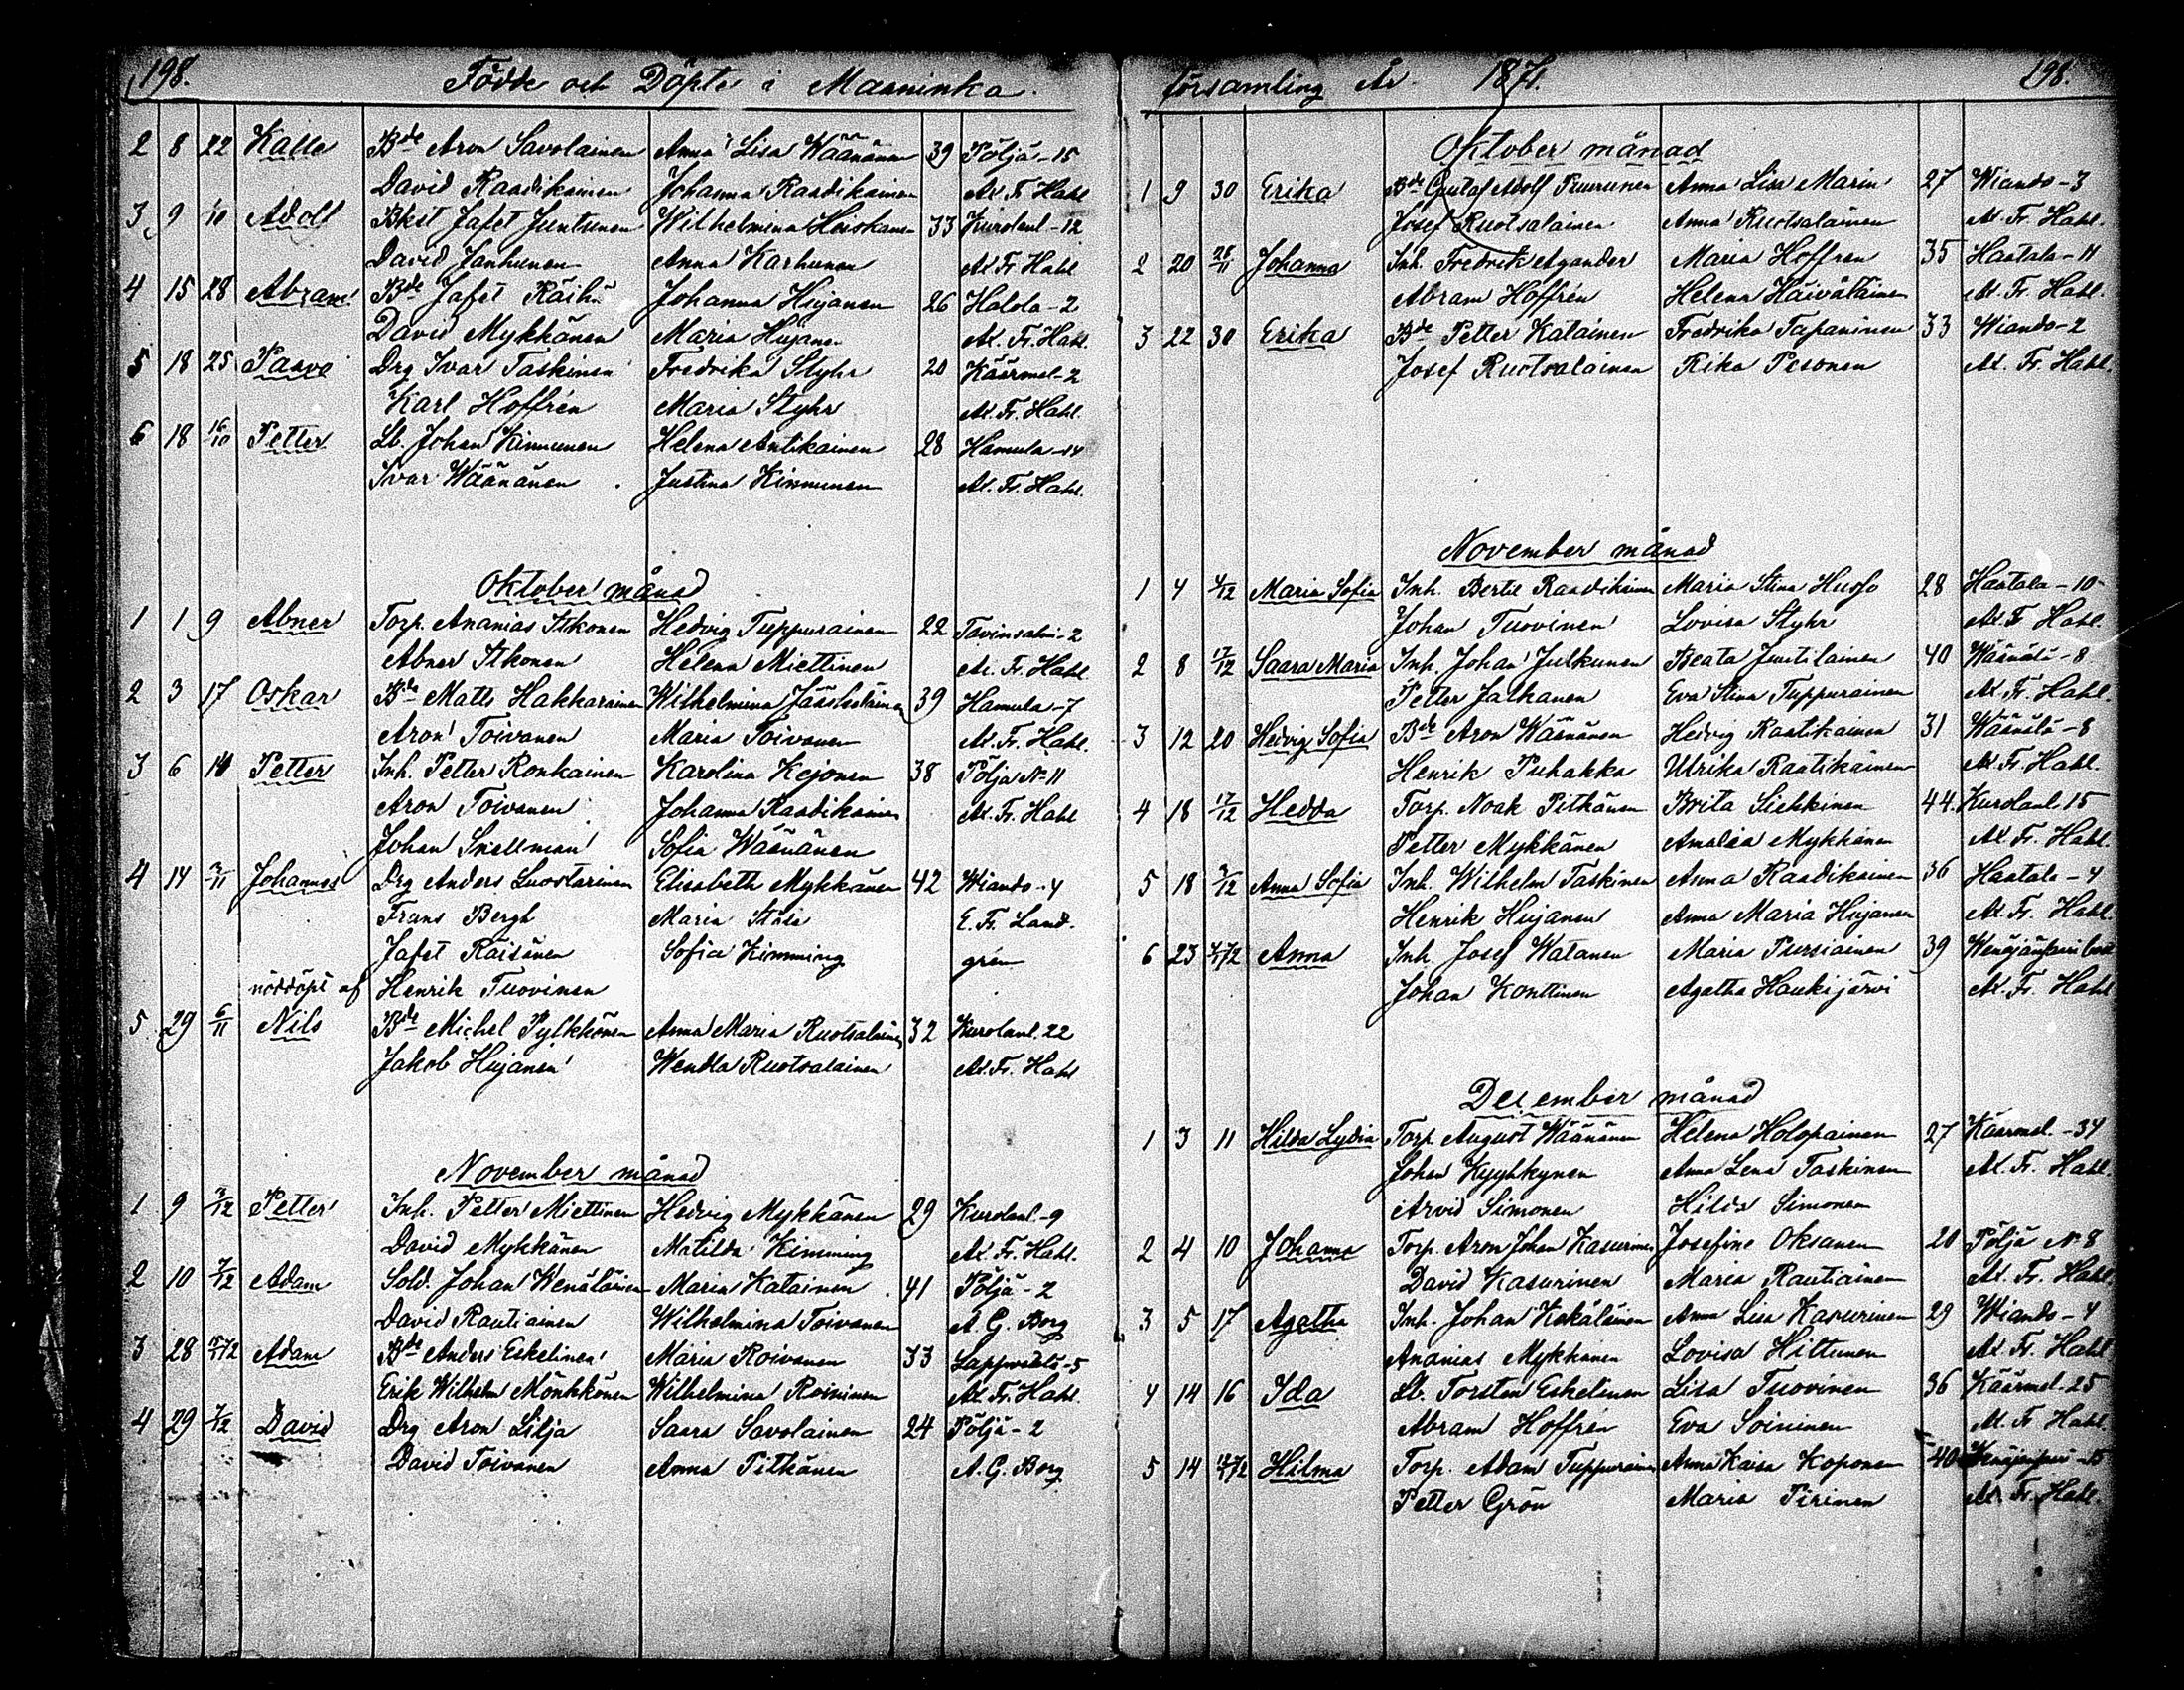 198. Födde och Döpte i Maaninka
2 8 22 Kalle Bde Aron Savolainen Anna Lisa Wäänänen 39 Pöljä - 15
David Raadikainen Johanna Raadikainen Al. Fr. Hahl
3 9 1/10 Adolf Bkst Jafet Juntunen Wilhelmina Heiskanen 33 Kurolanl - 12
David Janhunen Anna Karhunen Al Fr. Hahl
4 15 28 Abram Bde Jafet Räihä Johanna Hujanen 26 Halola - 2
David Mykkänen Maria Hujanen Al. Fr. Hahl
5 18 25 Paavo Drg Ivar Taskinen Fredrika Styhr 20 Käärmel - 2
Karl Hoffrén Maria Styhr Al. Fr. Hahl.
6 18 16/10 Petter Lb. Johan Kinnunen Helena Antikainen 28 Hamula - 14
Ivar Wäänänen Justina Kinnunen Al. Fr. Hahl.
Oktober månad
1 1 9 Abner Torp. Ananias Itkonen Hedvig Tuppurainen 22 Tavinsalmi - 2
Abner Itkonen Helena Miettinen Al. Fr. Hahl
2 3 17 Oskar Bde Matts Hakkarainen Wilhelmina Jääskeläinen 39 Hamula - 7
Aron Toivanen Maria Toivanen Al. Fr. Hahl.
3 6 14 Petter Inh. Petter Ronkainen Karolina Kejonen 38 Pölja No 11
Aron Toivanen Johanna Raadikainen Al. Fr. Hahl
Johan Snellman Sofia Wäänänen
4 14 Johannes Drg Anders Luostarinen Elisabeth Mykkänen 42 Wiando - 4
Frans Bergh Maria Ståhl E. Fr. Land.
Jafet Räisänen Sofia Kimming grén
nöddöpt af Henrik Tuovinen
5 29 6/11 Nils Bde Michel Pylkkönen Anna Maria Ruotsalainen 32 Kurolanl. 22
Jakob Hujanen Wendla Ruotsalainen Al. Fr. Hahl
November månad
1 9 3/12 Petter Inh. Petter Miettinen Hedvig Mykkänen 29 Kurolanl - 9
David Mykkänen Matilda Kimming Al. Fr. Hahl.
2 10 Adam Sold. Johan Wenäläinen Maria Katainen 41 Pöljä - 2
David Rautiainen Wilhelmina Toivanen A. G. Borg
3 28 Adam Bde Anders Eskelinen Maria Roivanen 33 Lappvetelä - 5
Erik Wilhelm Mönkkönen Wilhelmina Roininen Al. Fr. Hahl.
4 29 David Drg Aron Lilja Saara Savolainen 24 Pöljä - 2
David Toivanen Anna Pitkänen A. G. Borg
församling År 1871. 198.
Oktober månad
1 9 30 Erika Bde Gustaf Adolf Puurunen Anna Lisa Marin 27 Wiando - 3
Josef Ruotsalainen Anna Ruotsalainen Al. Fr. Hahl.
2 20 Johanna Inh. Fredrik Agander Maria Hoffren 35 Haatala - 11
Abram Hoffrén Helena Käiväläinen Al. Fr. Hahl.
3 22 30 Erika Bde Petter Katainen Fredrika Tapaninen 33 Wiando - 2
Josef Ruotsalainen Rika Pesonen Al. Fr. Hahl.
November månad
1 4 Maria Sofia Inh. Bertil Raadikainen Maria Stina Husso 28 Haatala - 10
Johan Tuovinen Lovisa Styhr Al. Fr Hahl.
2 8 17/12 Saara Maria Inh. Johan Julkunen Beata Juutilainen 40 Wäänälä - 8
Petter Jalkanen Eva Stina Tuppurainen Al Fr. Hahl.
3 12 20 Hedvig Sofia Bde Aron Wäänänen Hedvig Raatikainen 31 Wäänälä - 8
Henrik Puhakka Ulrika Raatikainen Al. Fr. Hahl.
4 18 17/12 Hedda Torp. Noak Pitkänen Brita Siekkinen 44. Kurolanl 15
Petter Mykkänen Amalia Mykkänen Al. Fr. Hahl.
5 18 3/12 Anna Sofia Inh. Wilhelm Taskinen Anna Raadikainen 36 Haatala - 4
Henrik Hujanen Anna Maria Hujanen Al. Fr. Hahl.
6 23 Anna Inh. Josef Watanen Maria Pursiainen 39
Johan Konttinen Agatha Haukijärvi Al. Fr. Hahl
December månad
1 3 11 Hilda Lydia Torp. August Wäänänen Helena Holopainen 27 Käärmel. - 34
Johan Kyyhkynen Anna Lena Taskinen Al. Fr. Hahl
Arvid Simonen Hilda Simonen
2 4 10 Johanna Torp. Aron Johan Kasurinen Josefine Oksanen 20 Pöljä No 8
David Kasurinen Maria Rautiainen Al. Fr. Hahl
3 5 17 Agatha Inh. Johan Kekäläinen Anna Lisa Kasurinen 29 Wiando - 4
Ananias Mykkänen Lovisa Hiltunen Al. Fr. Hahl
4 14 16 Ida Lb. Torsten Eskelinen Lisa Tuovinen 36 Käärmel - 25
Abram Hoffrén Eva Soininen Al. Fr Hahl.
5 14 Hilma Torp. Adam Tuppurainen Anna Kaisa Koponen 40
Petter Grön Maria Pirinen Al. Fr. Hahl.